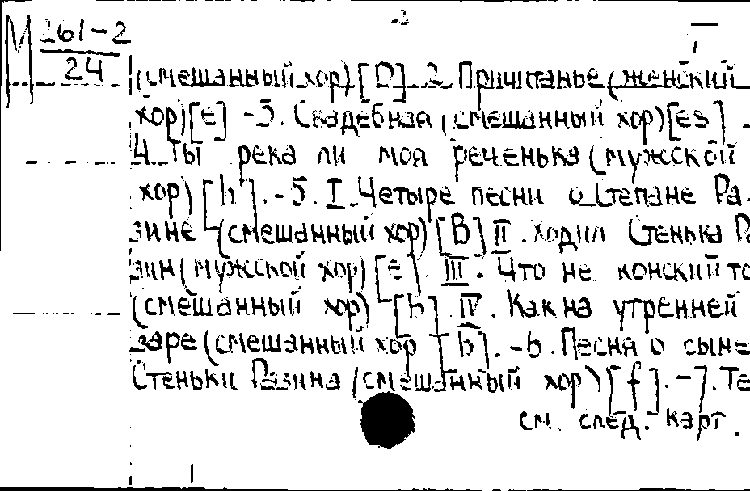 -2
М 261-2
24
(смешанный хор) [D]. 2. Причитанье (женский
хор) [e] -3. Свадебная (смешанный хор) [es] -
4. Ты река ли моя реченька (мужской
хор) [h]. -5. I. Четыре песни о Степане Ра-
зине (смешанный хор) [B] II. Ходил Стенька Ра
зин (мужской хор) [e]. III. Что не конский то
(смешанный хор) [h]. IV. Как на утренней
заре (смешанный хор [h]. -6. Песня о сыне
Стеньки Разина (смешанный хор) [f]. -7. Те
см. след. карт.